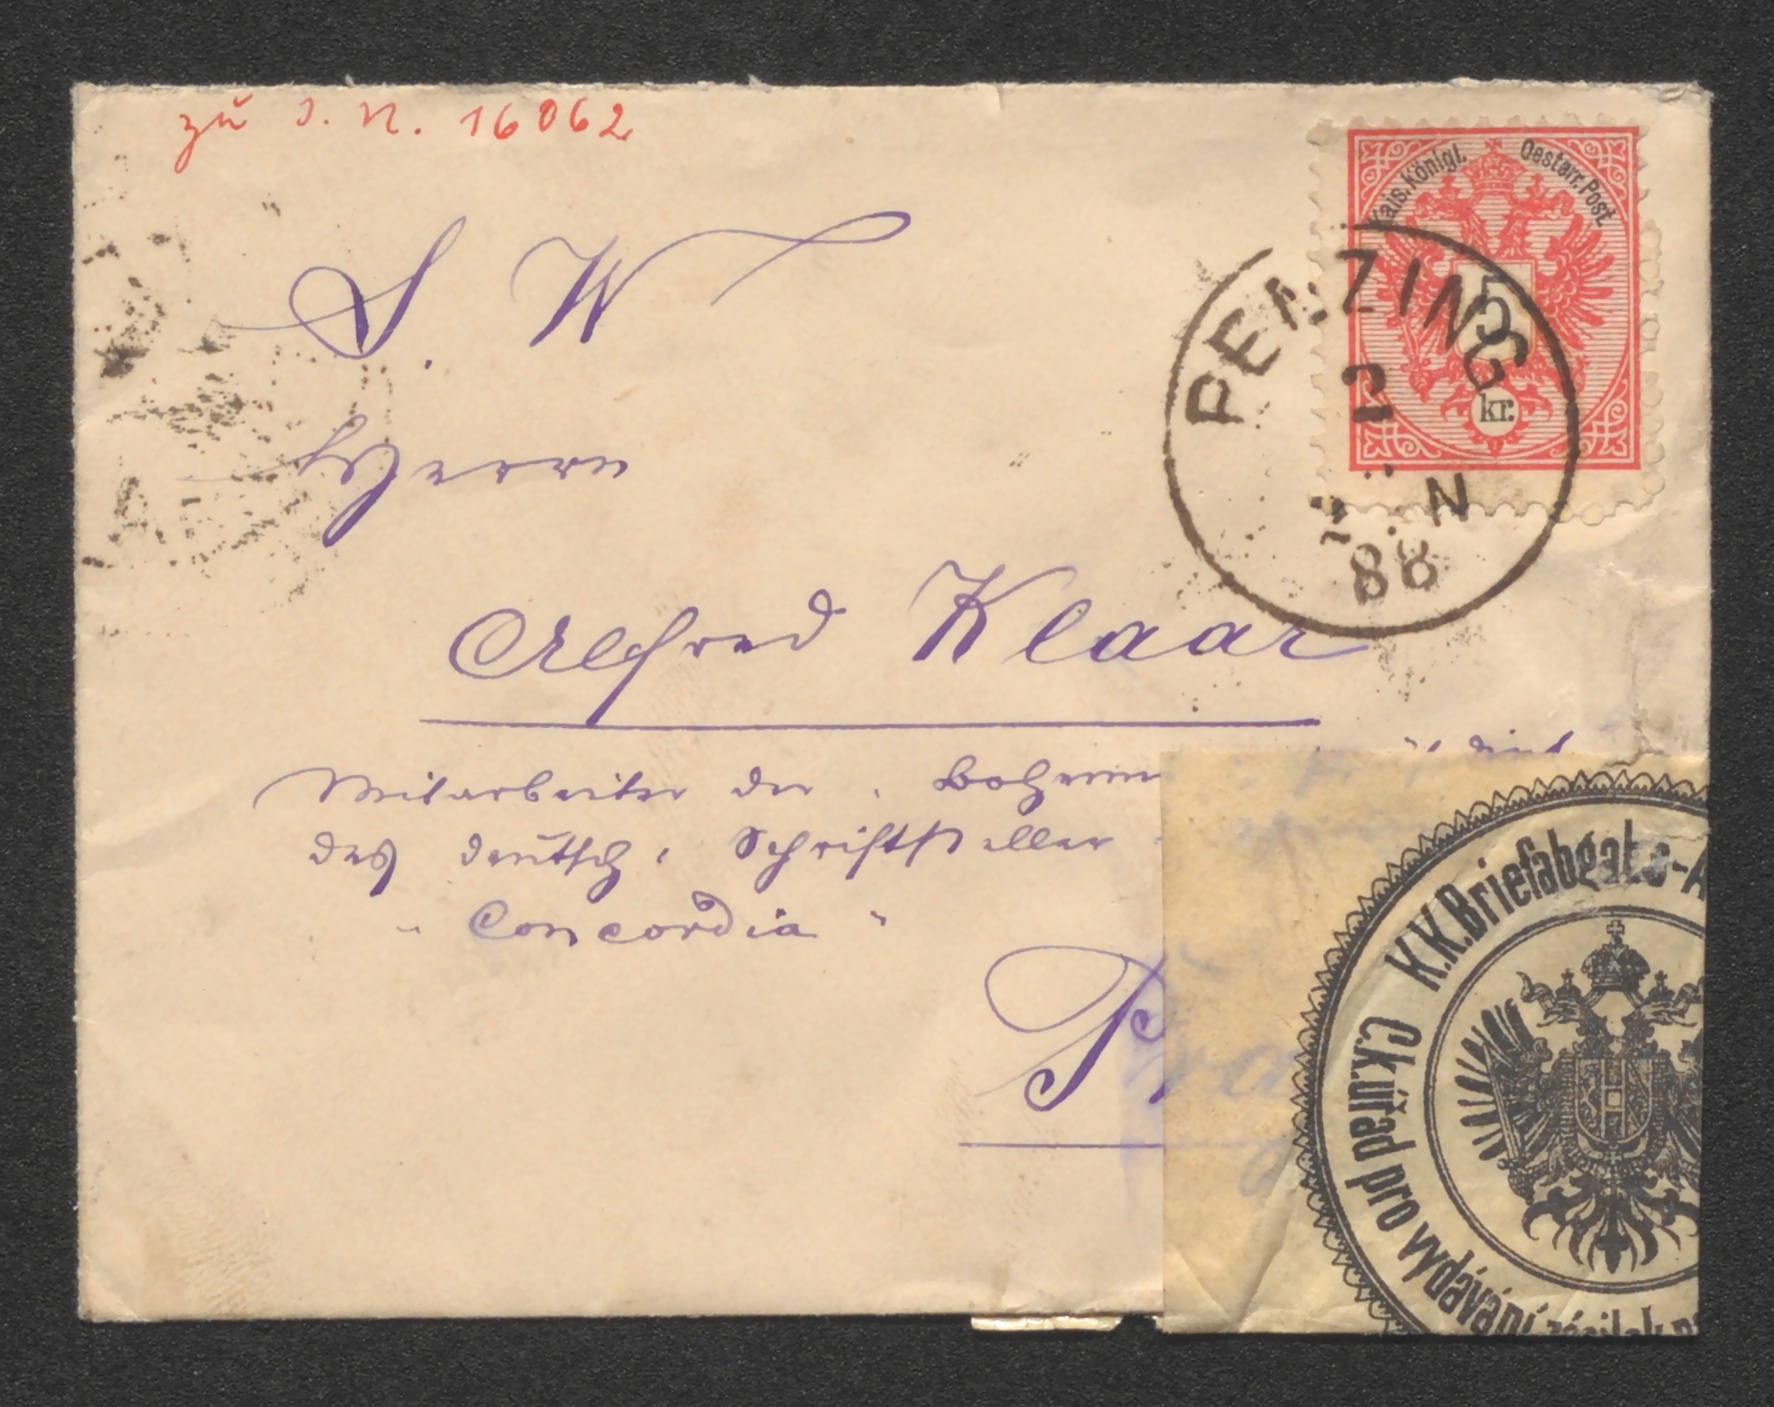 zu I. N. 16062
Kais. Königl. Oesterr. Post.
5
kr.
PENZING
2
N
88
S. W
Herrn
Alfred Klaar
Mitarbeiter der
des deutsch. Schriftsteller
"Concordia"
Prag
K.K. Briefabgabe-A
C.k. úřad pro vydávání zásilek